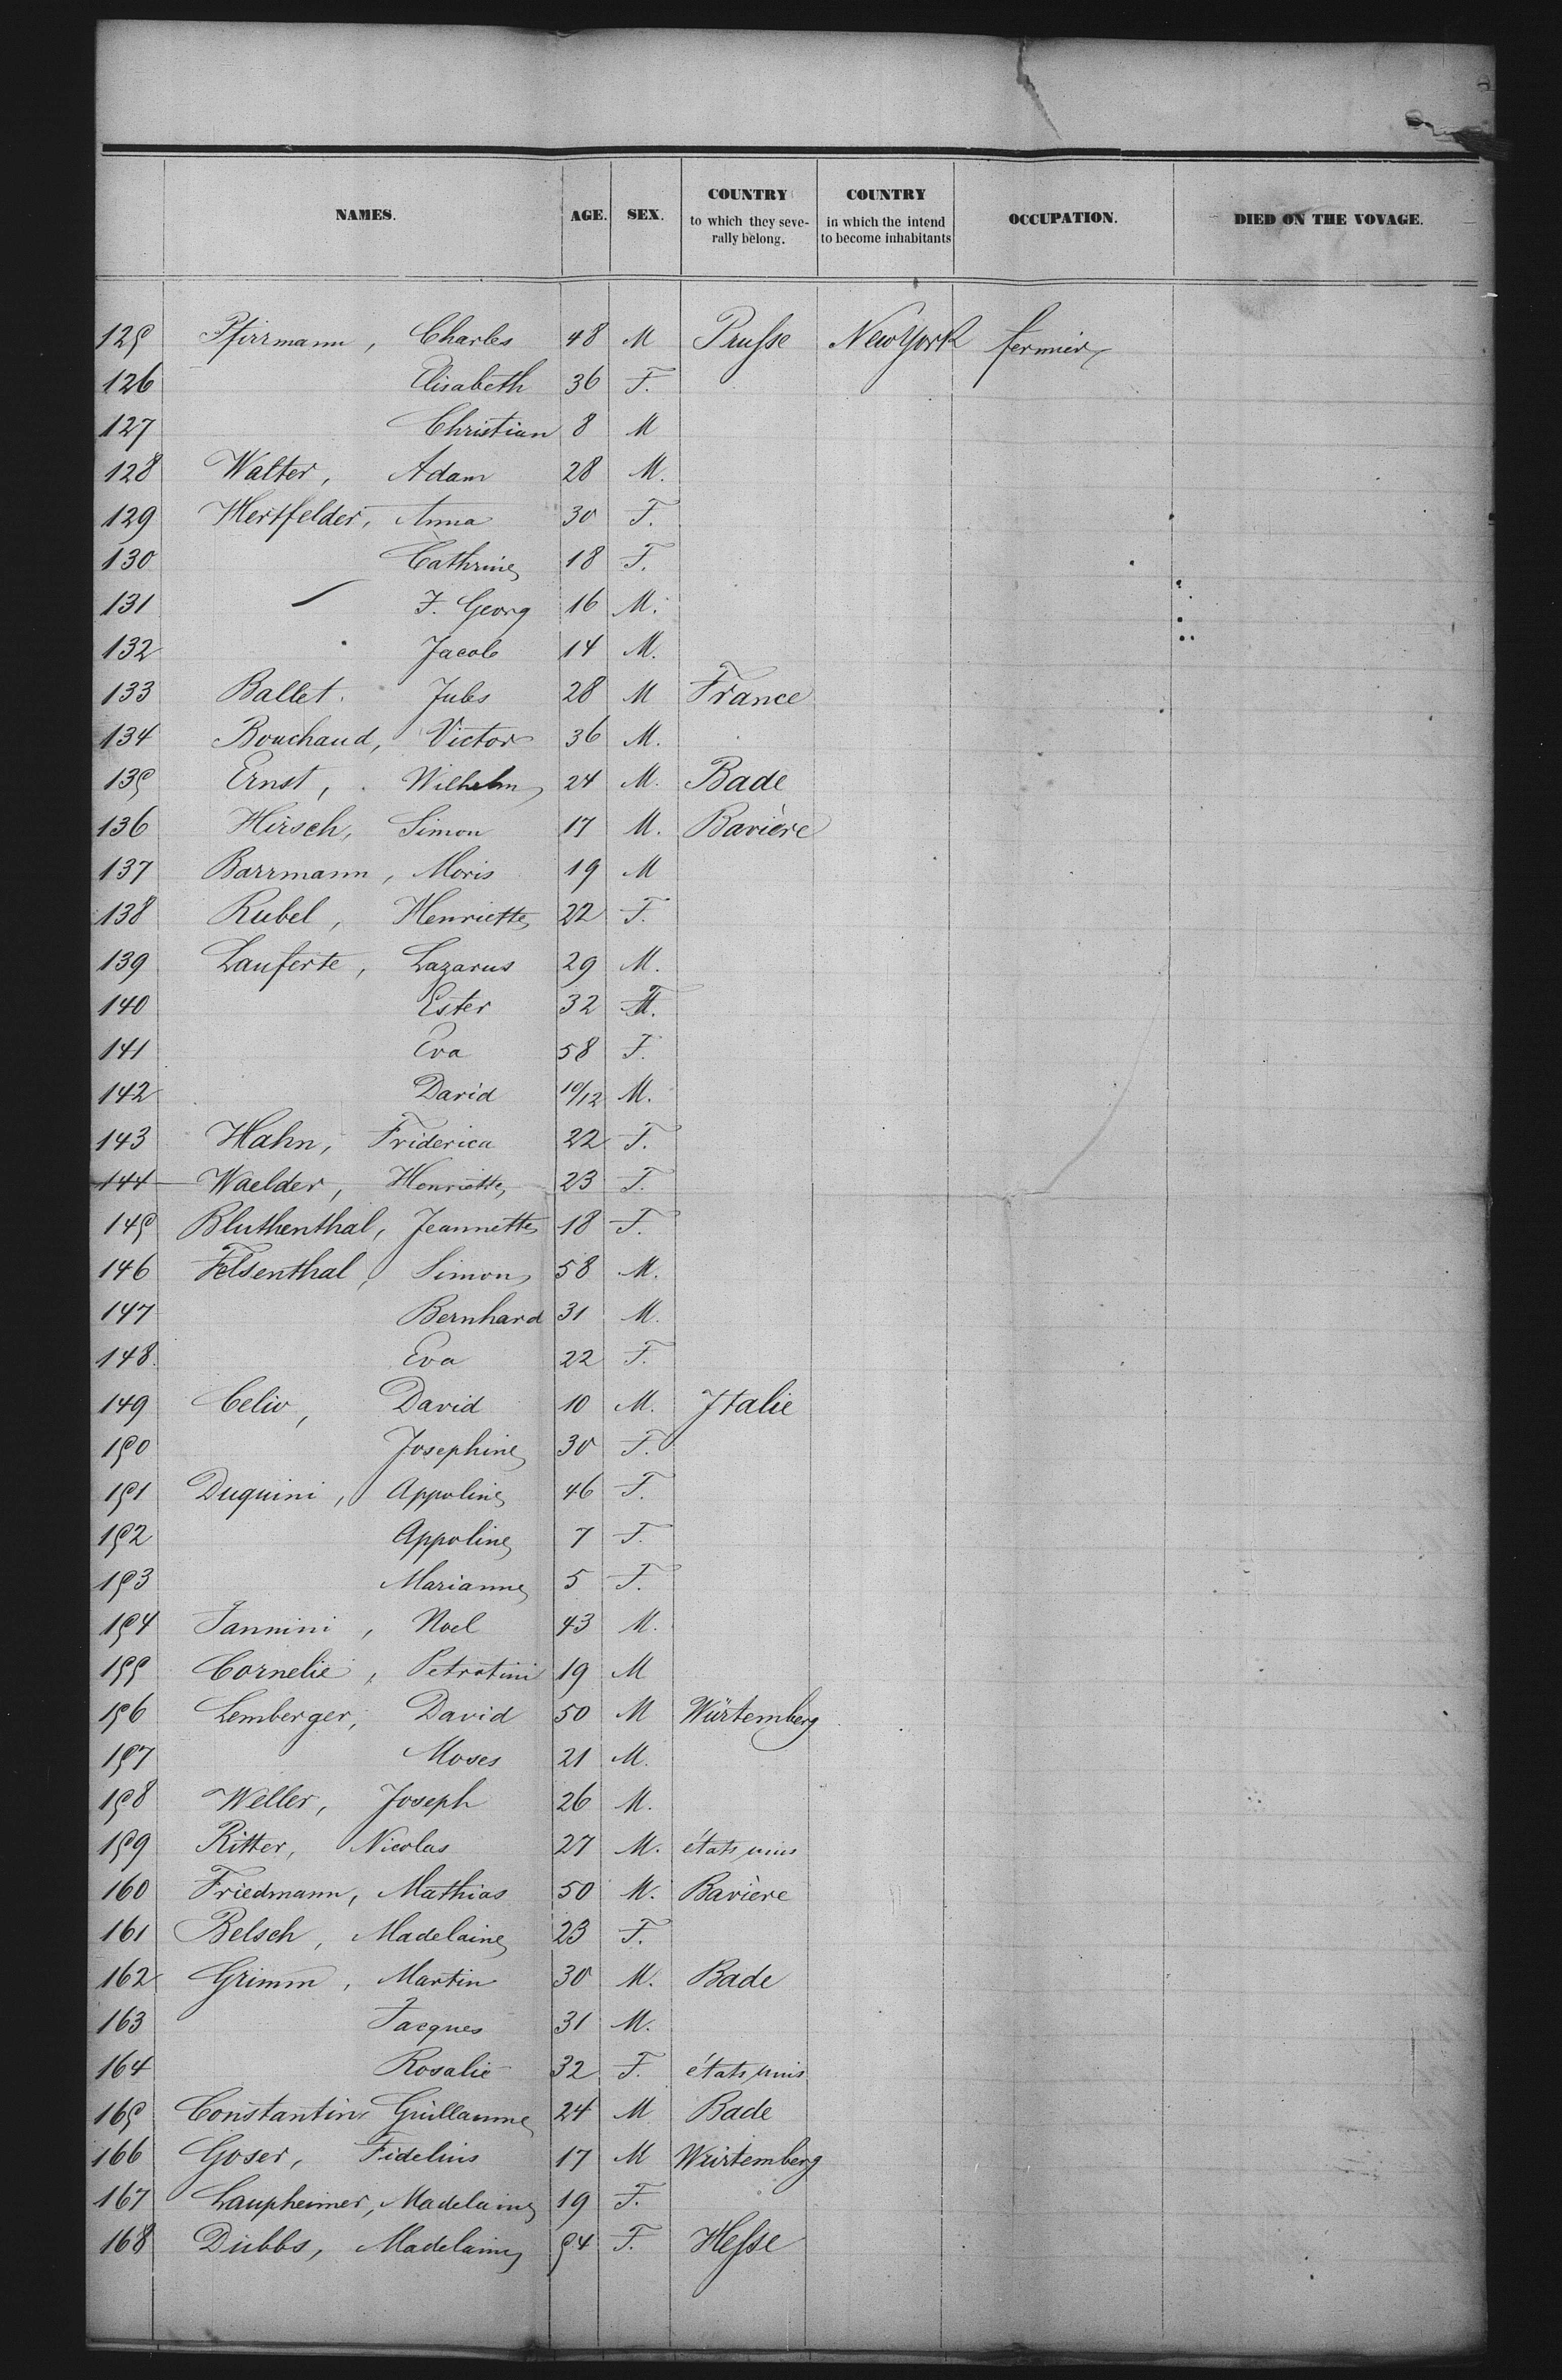 NAMES. AGE. SEX. COUNTRY to which they seve-rally belong. COUNTRY in which the intend to become inhabitants OCCUPATION. DIED ON THE VOVAGE.
125 Pfirrmann, Charles 48 M Prusse New York fermier
126 Elisabeth 36 F.
127 Christian 8 M
128 Walter, Adam 28 M.
129 Hertfelder, Anna 30 F.
130 Cathrine 18 F.
131 F. Georg 16 M.
132 Jacob 14 M.
133 Ballet. Jules 28 M France
134 Bouchaud, Victor 36 M.
135 Ernst, Wilhelm 24 M. Bade
136 Hirsch, Simon 17 M. Bavière
137 Barrmann, Moris 19 M
138 Rubel, Henriette 22 F.
139 Lauferte, Lazarus 29 M.
140 Ester 32 F.
141 Eva 58 F.
142 David 10/12 M.
143 Hahn, Friderica 22 F.
144 Waelder, Henriette 23 F.
145 Bluthenthal, Jeannette 18 F.
146 Felsenthal, Simon 58 M.
147 Bernhard 31 M.
148. Eva 22 F.
149 Celio, David 10 M. Italie
150 Josephine 30 F.
151 Duquini, Appoline 46 F.
152 Appoline 7 F.
153 Marianne 5 F.
154 Jannini, Noel 43 M.
155 Cornelie, Petrotini 19 M
156 Lemberger, David 50 M Würtemberg
157 Moses 21 M.
158 Weller, Joseph 26 M.
159 Ritter, Nicolas 27 M. états unis
160 Friedmann, Mathias 50 M. Bavière
161 Belsch, Madelaine 23 F.
162 Grimm, Martin 30 M. Bade
163 Jacques 31 M.
164 Rosalie 32 F. états unis
165 Constantin Guillaume 24 M Bade
166 Goser, Fidelius 17 M Würtemberg
167 Laupheimer, Madelaine 19 F.
168 Dubbs, Madelaine 54 F. Hesse